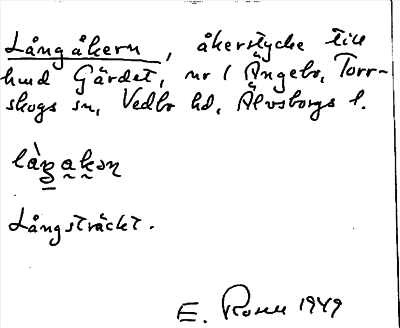 Långåkern, åkerstycke till
hmd Gärdet, nr 1 Ängebo, Torr-
skogs sn, Vedbo hd, Älvsborgs l.
Långsträckt.
E. Rosen 1949